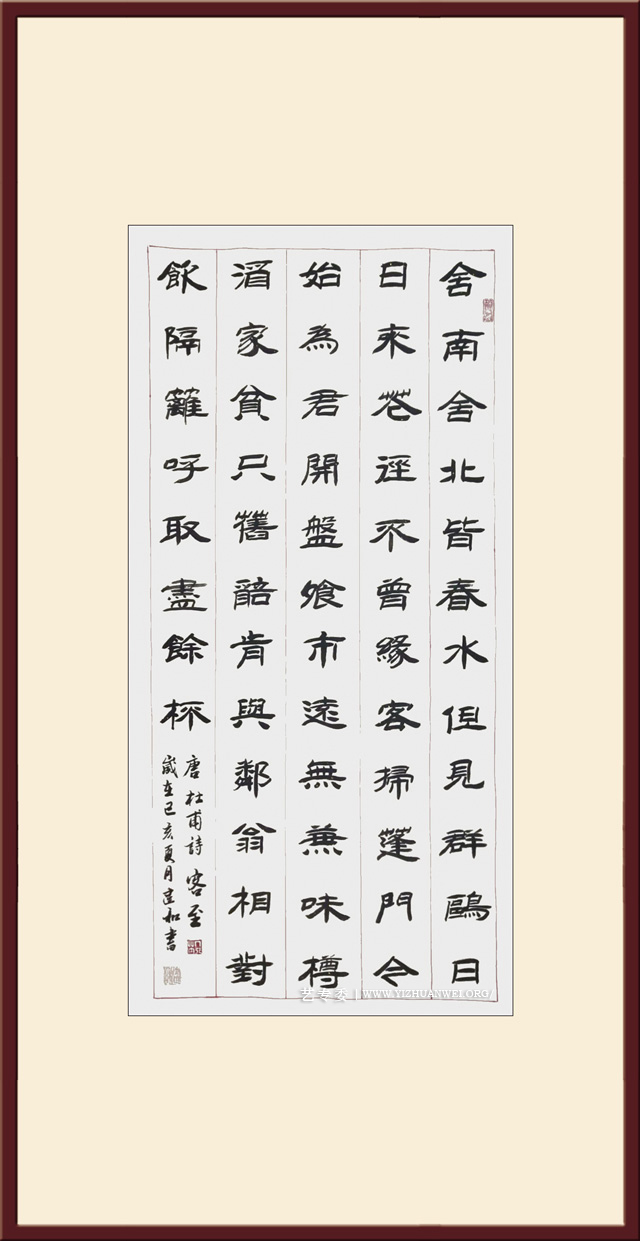 舍南舍北皆春水但見群鷗日
日来花徑不曾緣客掃蓬門今
始為君開盤飧市遠無兼味樽
酒家貧只舊醅肯與鄰翁相對
飲隔籬呼取盡餘杯
唐杜甫詩客至
歲在己亥夏月建和書
艺专委 | WWW.YIZHUANWEI.ORG